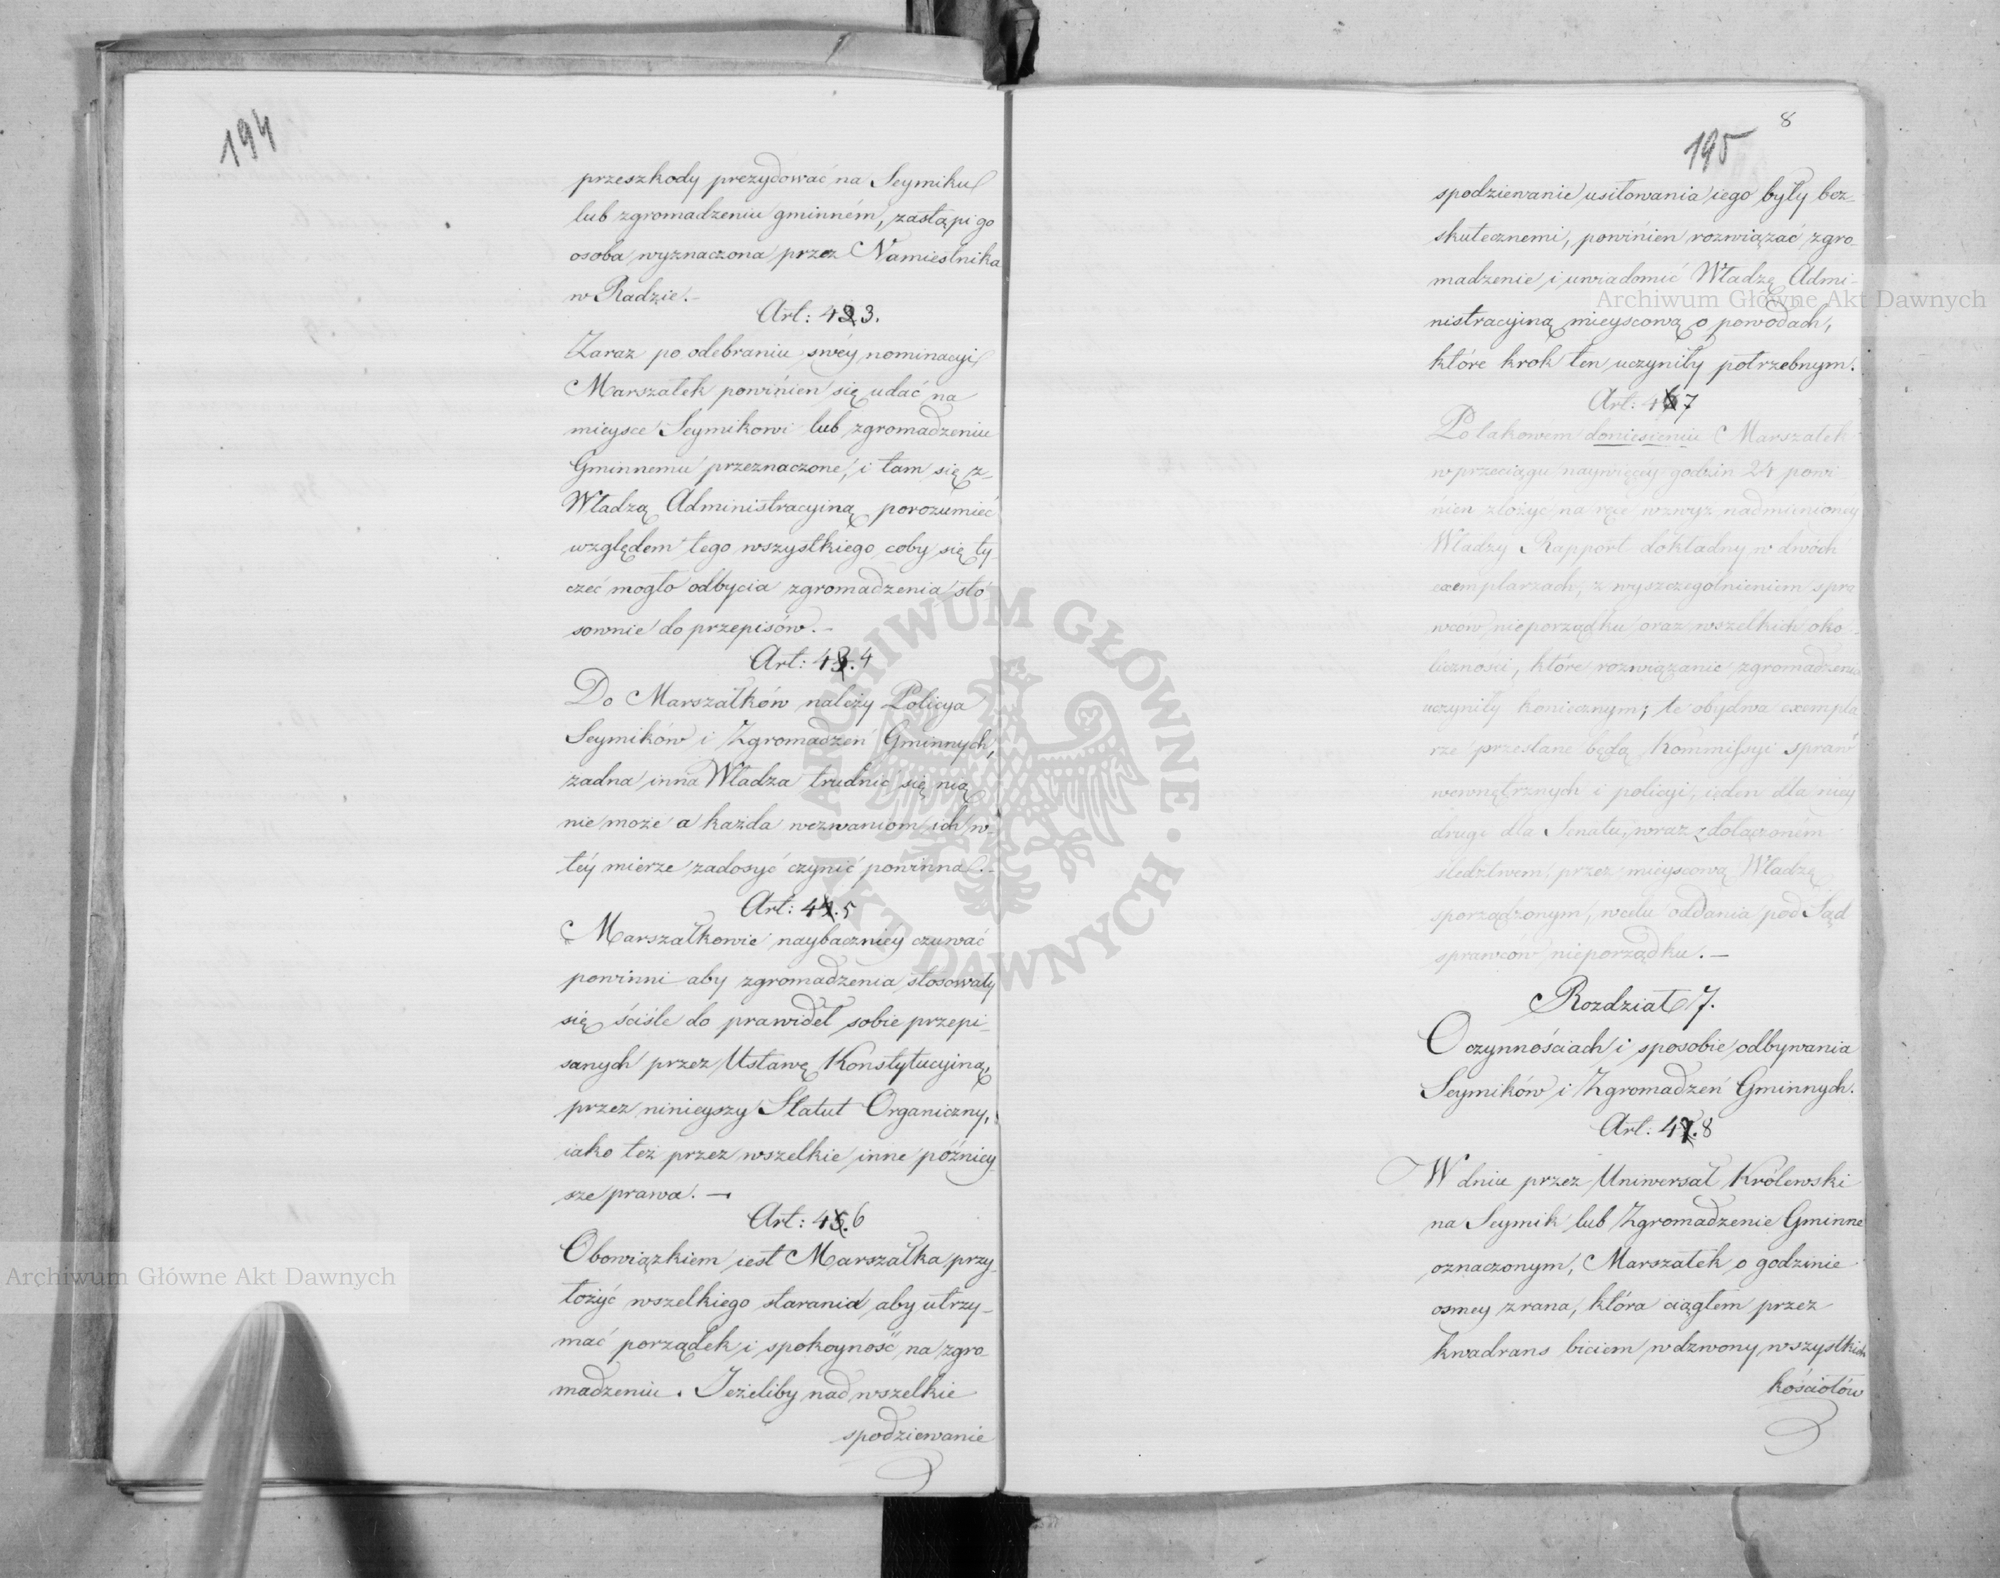 194
przeszkody prezydować na Seymiku
lub zgromadzeniu gminném, zastąpi go
osoba wyznaczona przez Namiestnika
w Radzie.-
Art: 423.
Zaraz po odebraniu swéy nominacyi
Marszałek powinien się udać na
mieysce Seymikowi lub zgromadzeniu
Gminnemu przeznaczone, i tam się z-
Władzą Administracyiną porozumieć
względem tego wszystkiego coby się ty
czeć mogło odbycia zgromadzenia sto
sownie do przepisów.-
Art: 43.4
Do Marszałków należy Policya
Seymików i Zgromadzeń Gminnych,
żadna inna Władza trudnić się nią
nie może a każda wezwaniom ich w-
téy mierze zadosyć czynić powinna.-
Art: 44.5
Marszałkowie naybaczniey czuwać
powinni aby zgromadzenia stosowały
się ściśle do prawideł sobie przepi-
sanych przez Ustawę Konstytucyiną,
przez ninieyszy Statut Organiczny,
iako też przez wszelkie inne późniey
sze prawa.-
Art: 45.6
Obowiązkiem iest Marszałka przy-
łożyć wszelkiego starania aby utrzy-
mać porządek i spokoyność na zgro-
madzeniu. Jeżeliby nad wszelkie
spodziewanie
8
195
spodziewanie usiłowania iego były bez-
skutecznemi, powinien rozwiązać zgro-
madzenie i uwiadomić Władzę Admi-
nistracyiną mieyscową o powodach,
które krok ten uczyniły potrzebnym.
Art: 467
Po takowem doniesieniu Marszałek
w przeciągu naywięcéy godzin 24 powi
nien złożyć na ręce wzwyż nadmienionéy
Władzy Rapport dokładny w dwóch
exemplarzach, z wyszczególnieniem spra
wców nieporządku oraz wszelkich oko-
liczności, które rozwiązanie zgromadzenia
uczyniły koniecznym; te obydwa exempla
rze przesłane będą Kommissyi spraw
wewnętrznych i policyi, ieden dla niéy
drugi dla Senatu, wraz z dołączoném
śledztwem przez mieyscową Władzę
sporządzonym, w celu oddania pod Sąd
sprawców nieporządku.-
Rozdział 7.
O czynnościach i sposobie odbywania
Seymików i Zgromadzeń Gminnych.
Art: 47.8
W dniu przez Uniwersał Królewski
na Seymik lub Zgromadzenie Gminne
oznaczonym, Marszałek o godzinie
osmey zrana, która ciągłem przez
kwadrans biciem w dzwony wszystkich
kościołów
Archiwum Główne Akt Dawnych
Archiwum Główne Akt Dawnych
ARCHIWUM GŁÓWNE · AKT DAWNYCH ·